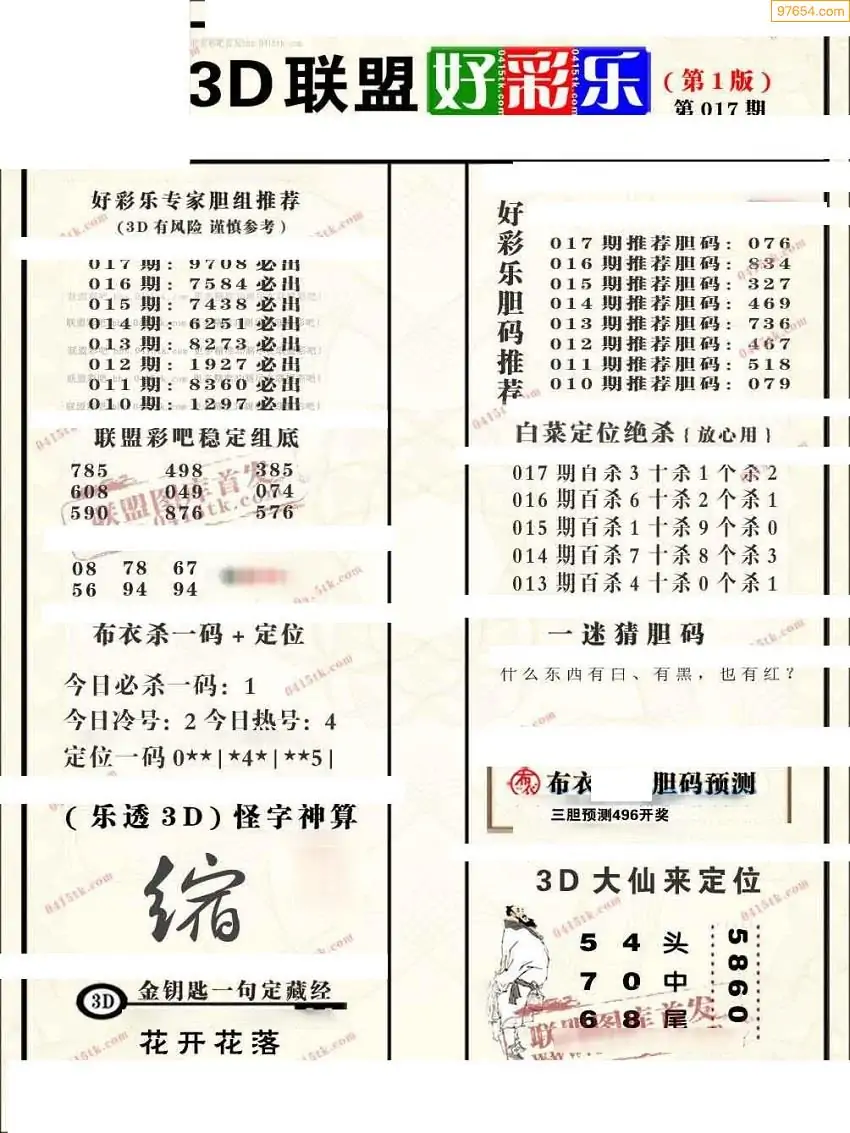 97654.com
3D联盟好彩乐(第1版)
第017期
好彩乐专家胆组推荐
(3D有风险 谨慎参考)
017期:9708必出
016期:7584必出
015期:7438必出
014期:6251必出
013期:8273必出
012期:1927必出
011期:8360必出
010期:1297必出
联盟彩吧稳定组底
785 498 385
608 049 074
590 876 576
08 78 67
56 94 94
布衣杀一码+定位
今日必杀一码:1
今日冷号:2 今日热号:4
定位一码0**|*4*|**5|
(乐透3D)怪字神算
缩
3D 金钥匙一句定藏经
花开花落
好彩乐胆码推荐
017期推荐胆码:076
016期推荐胆码:834
015期推荐胆码:327
014期推荐胆码:469
013期推荐胆码:736
012期推荐胆码:467
011期推荐胆码:518
010期推荐胆码:079
白菜定位绝杀{放心用}
017期百杀3十杀1个杀2
016期百杀6十杀2个杀1
015期百杀1十杀9个杀0
014期百杀7十杀8个杀3
013期百杀4十杀0个杀1
一迷猜胆码
什么东西有白、有黑,也有红?
布衣 胆码预测
三胆预测496开奖
3D大仙来定位
5 4 头
7 0 中
6 8 尾
5860
联盟图库首发
0415tk.com